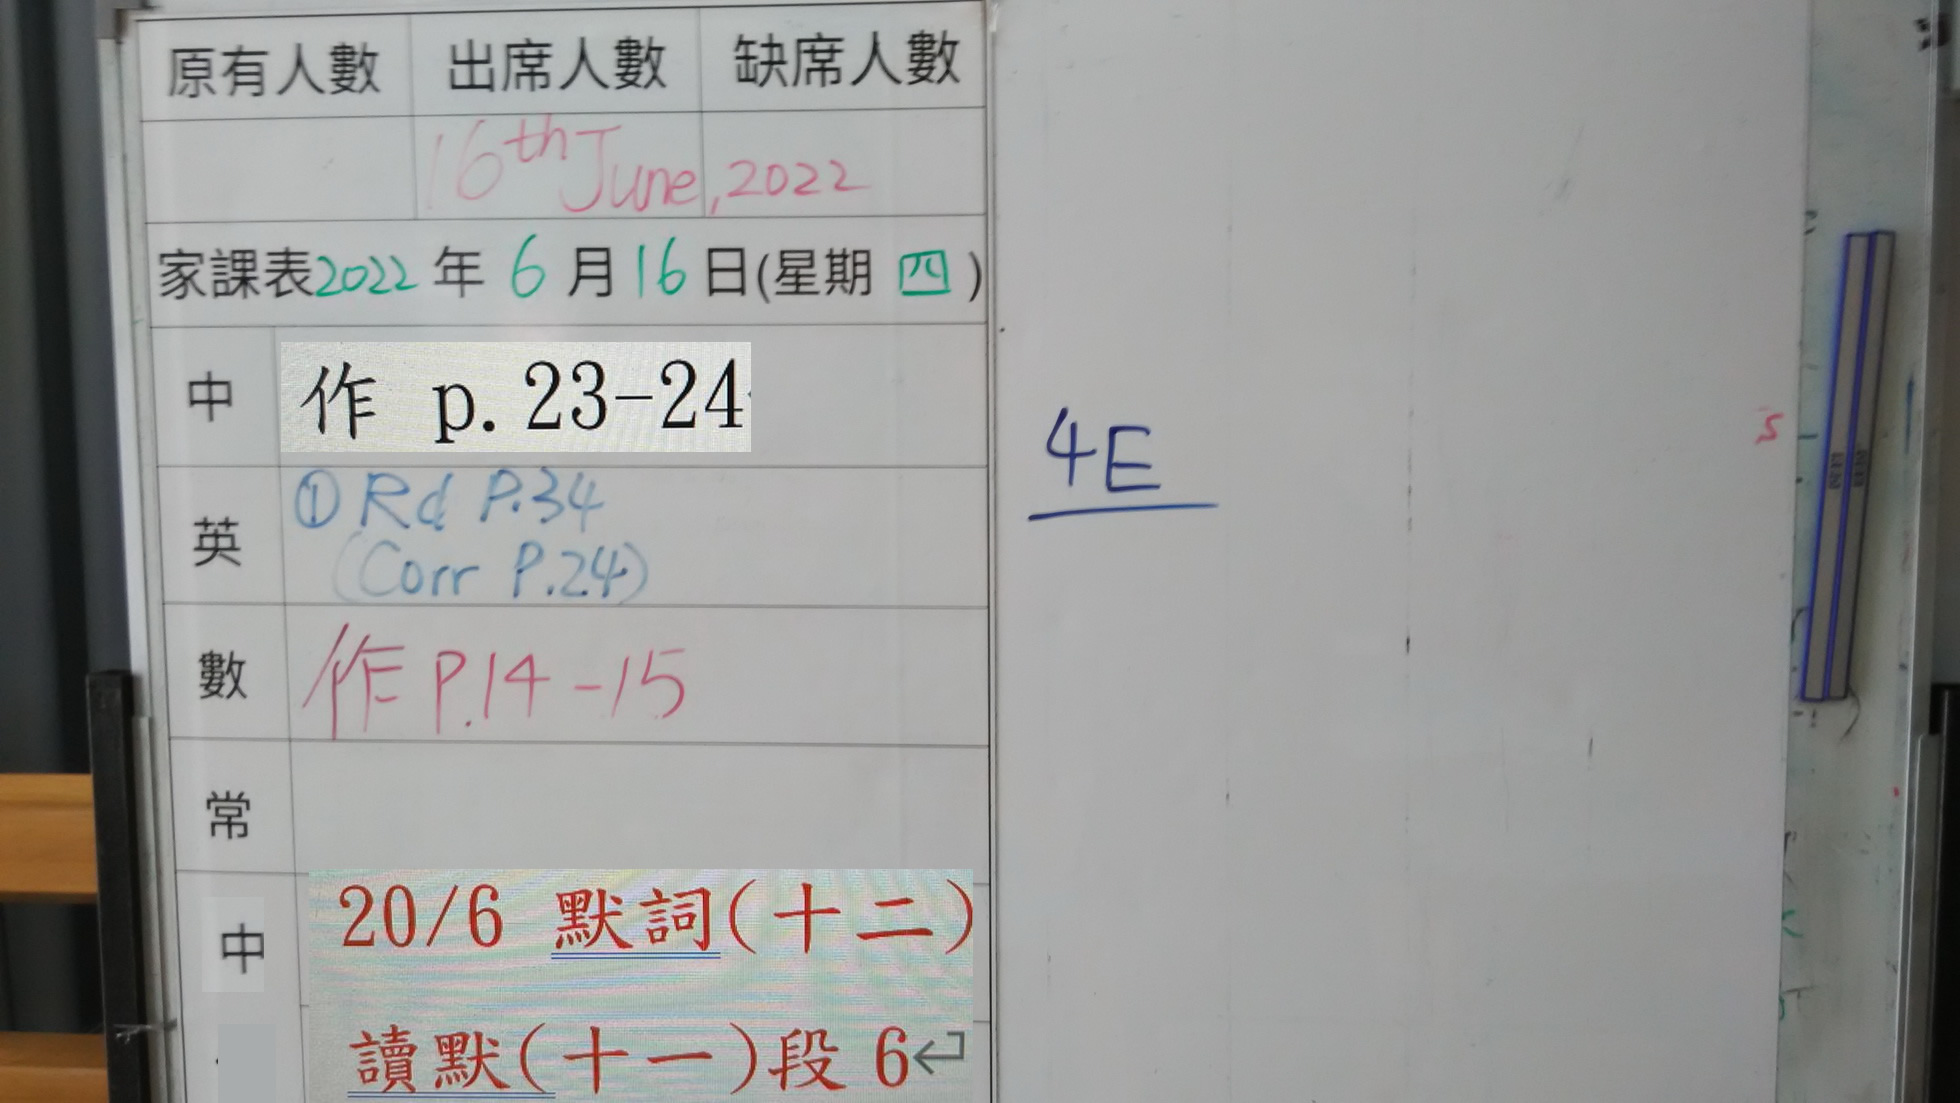 原有人數 出席人數 缺席人數
16th June, 2022
家課表2022年 6 月 16 日(星期 四 )
中 作 p. 23-24
英 ① Rd P.34
(Corr P.24)
數 作 P.14-15
常
中 20/6 默詞(十二)
讀默(十一)段 6↵
4E